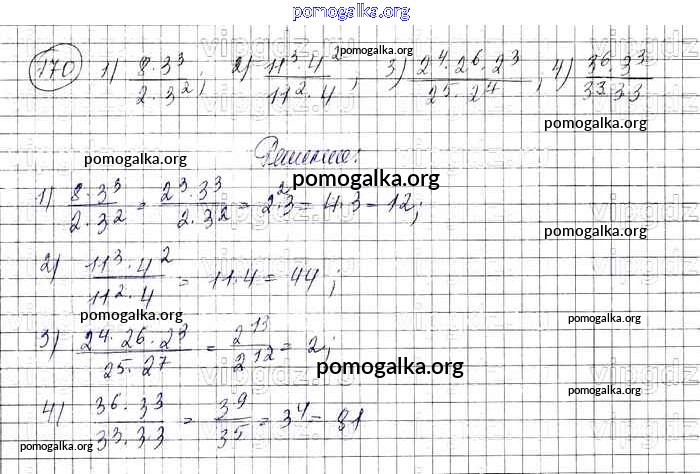 pomogalka.org
170 1) 8·3³/2·3²; 2) 11³·4²/11²·4; 3) 2⁴·2⁶·2³/2⁵·2⁴; 4) 3⁶·3³/3³·33
pomogalka.org
pomogalka.org
Решение:
pomogalka.org
pomogalka.org
1) 8·3³/2·3² = 2³·3³/2·3² = 2²·3 = 4·3 = 12;
pomogalka.org
2) 11³·4²/11²·4 = 11·4 = 44;
pomogalka.org
pomogalka.org
3) 2⁴·2⁶·2³/2⁵·2⁷ = 2¹³/2¹² = 2;
pomogalka.org
pomogalka.org
4) 3⁶·3³/3³·33 = 3⁹/3⁵ = 3⁴ = 81
pomogalka.org
pomogalka.org